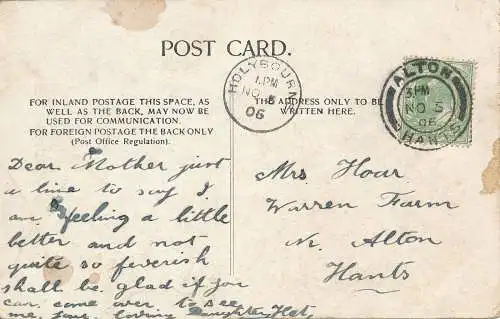 POST CARD.
FOR INLAND POSTAGE THIS SPACE, AS
WELL AS THE BACK, MAY NOW BE
USED FOR COMMUNICATION.
FOR FOREIGN POSTAGE THE BACK ONLY
(Post Office Regulation).
THE ADDRESS ONLY TO BE
WRITTEN HERE.
HOLYBOURNE
1 PM
NO 5
06
ALTON
3 PM
NO 5
06
HANTS
Dear Mother just
a line to say I
am feeling a little
better and not
quite so feverish
shall be glad if you
can come over to see
me, your loving daughter Het
Mrs Hoar
Warren Farm
Nr Alton
Hants